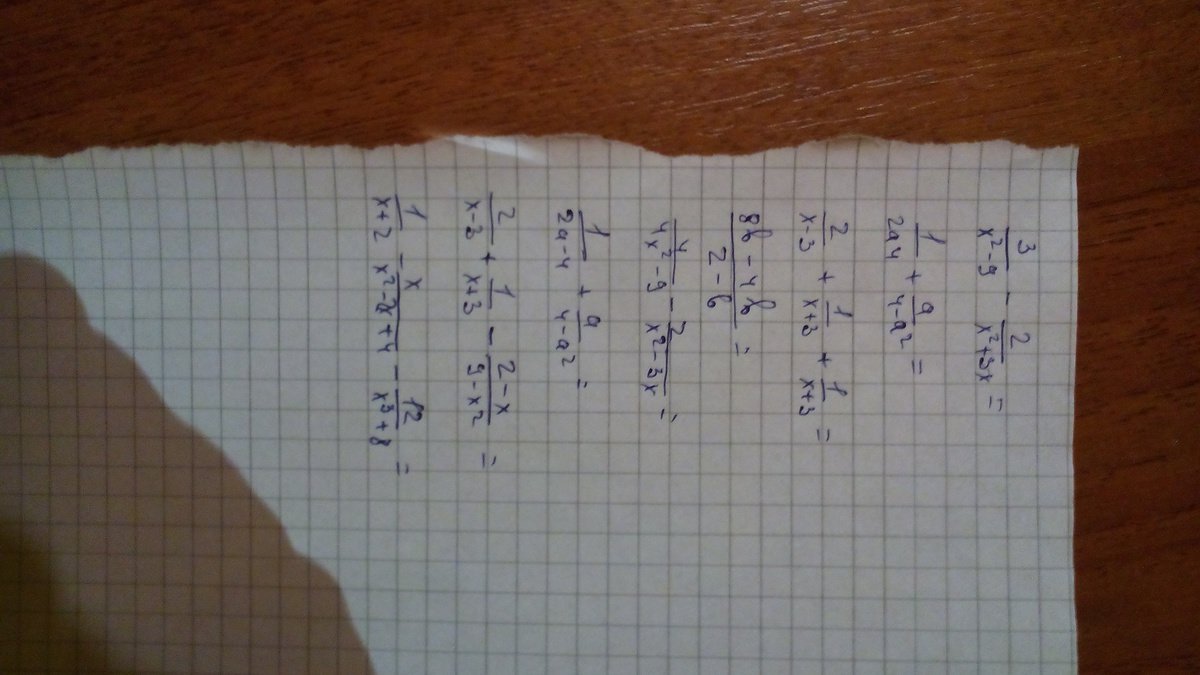 3/(x²-9) - 2/(x²+3x) =
1/(2a4) + a/(4-a²) =
2/(x-3) + 1/(x+3) + 1/(x+3) =
(8b-4b)/(2-b) =
4/(4x²-9) - 2/(x²-3x) =
1/(2a-4) + a/(4-a²) =
2/(x-3) + 1/(x+3) - (2-x)/(9-x²) =
1/(x+2) - x/(x²-2+4) - 12/(x³+8) =